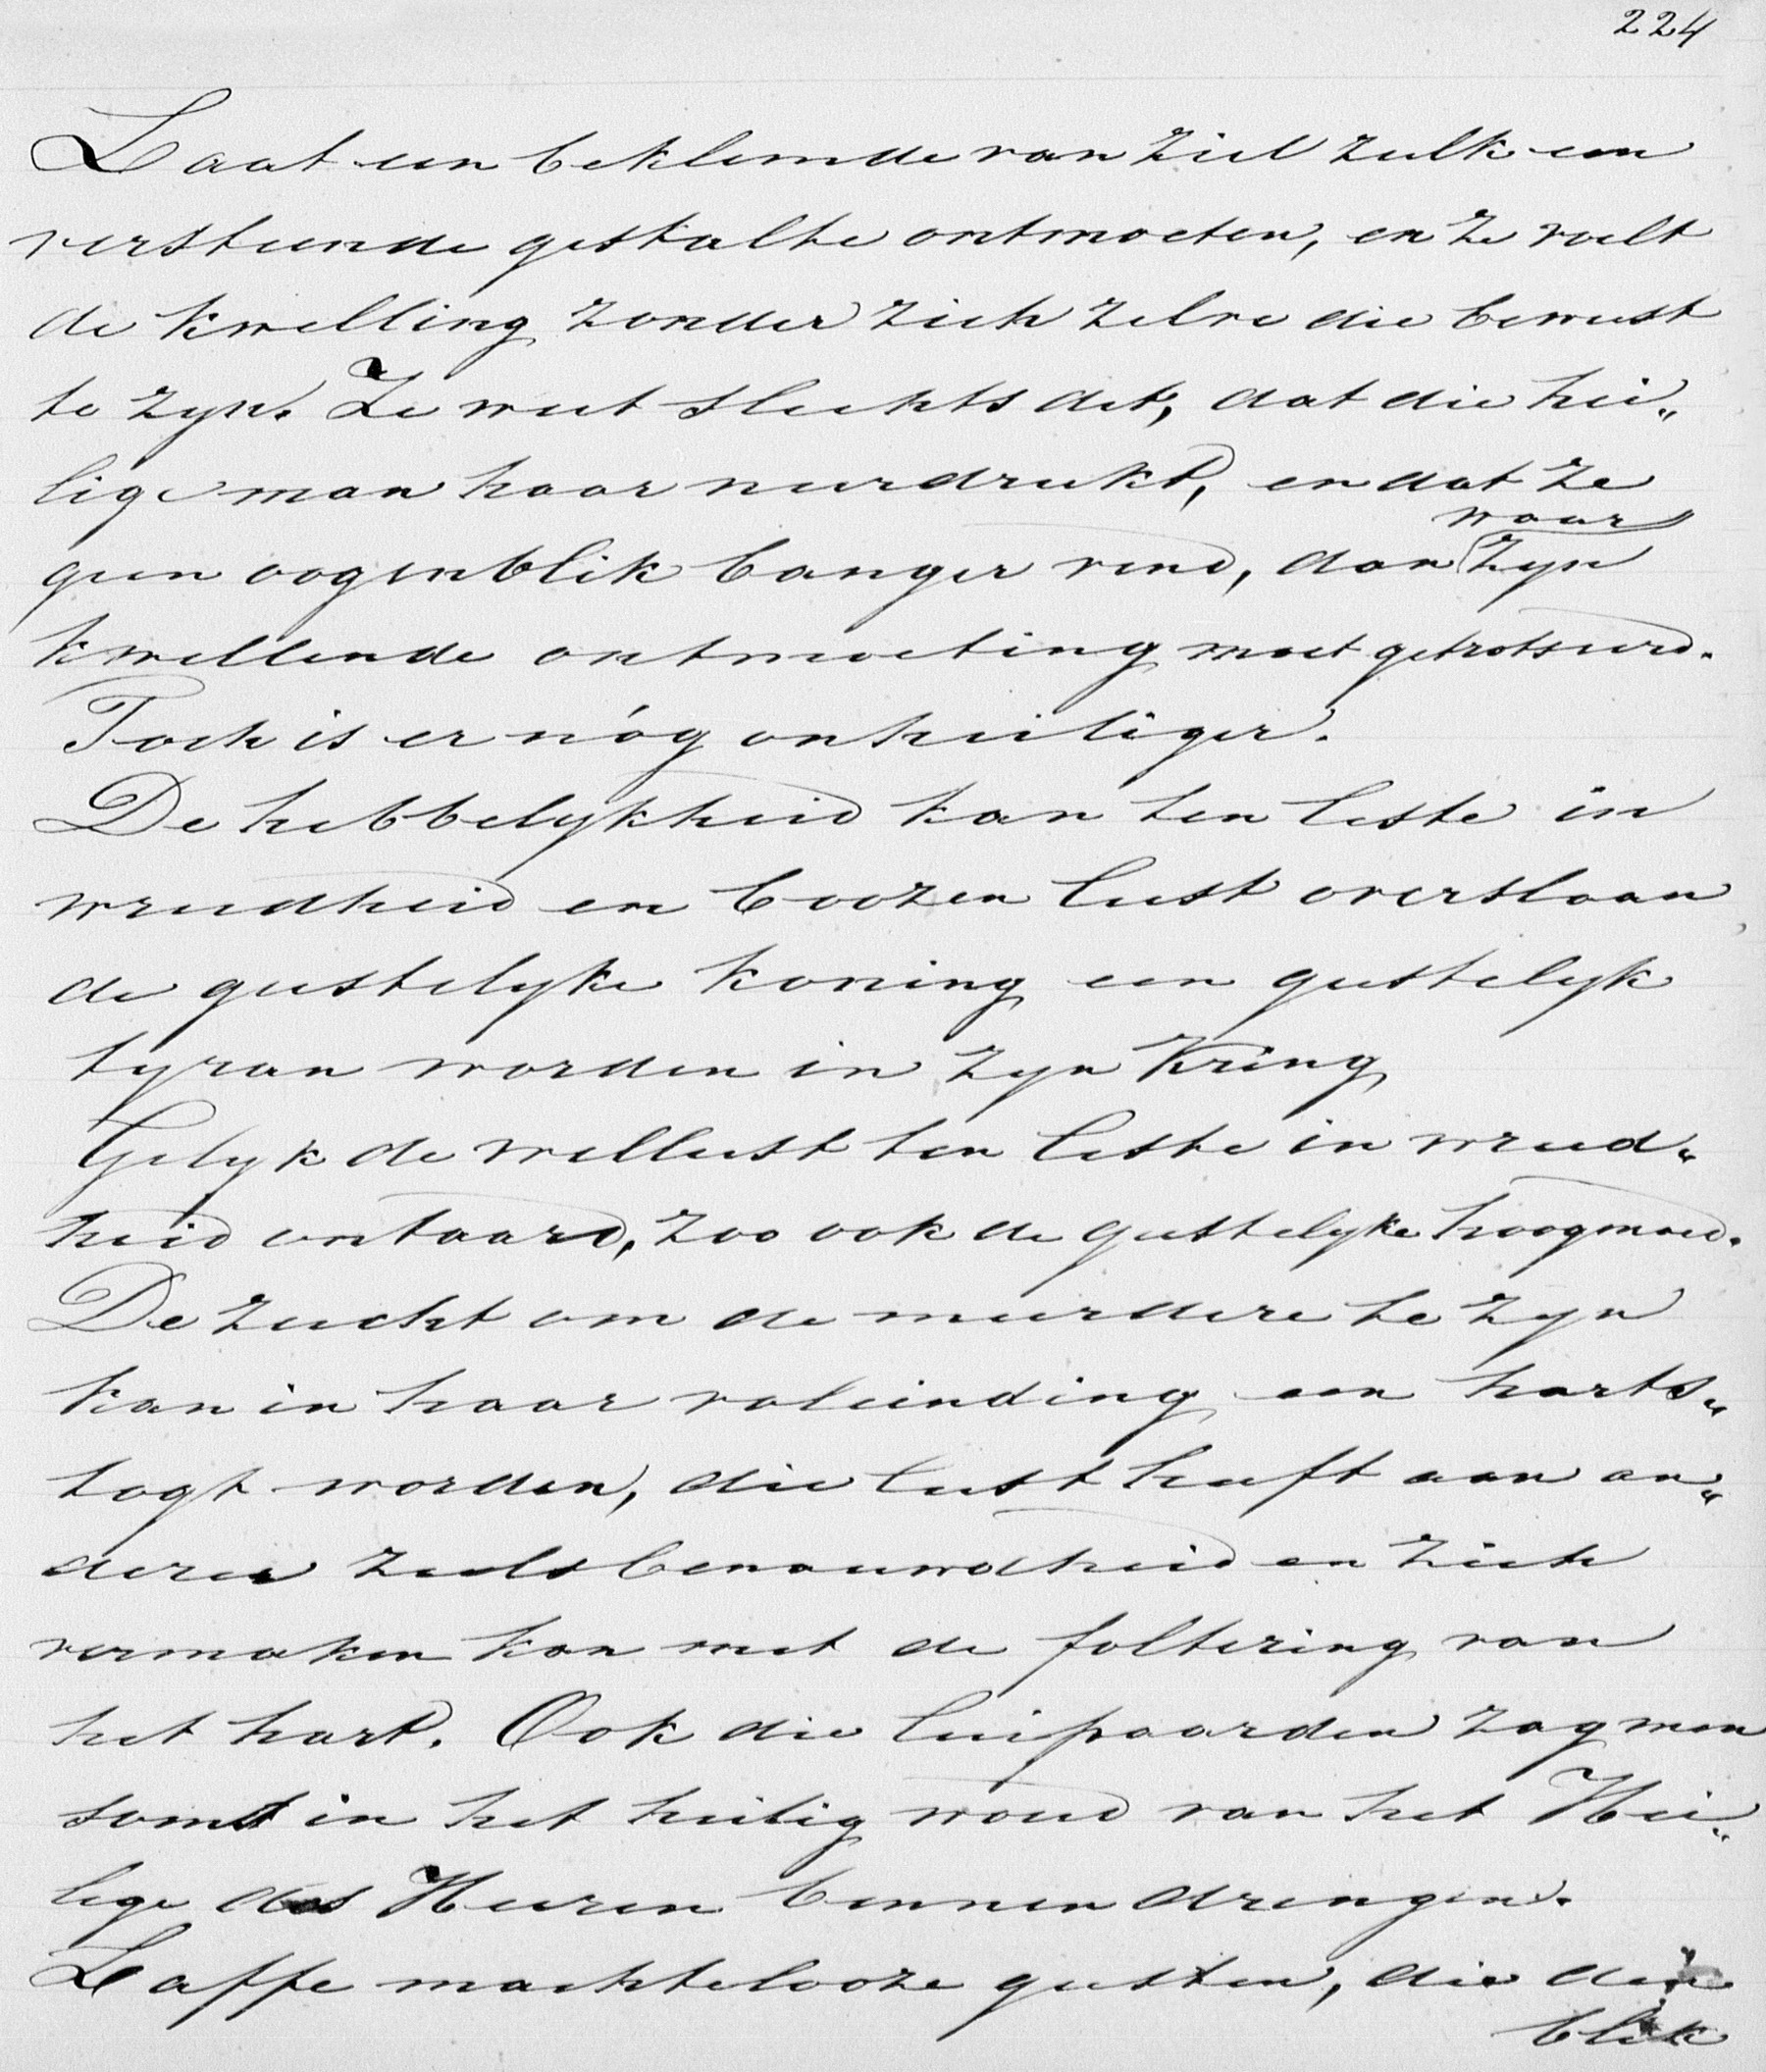 224
Laat een beklemde van ziel zulk een
versteende gestalte ontmoeten, en ze voelt
de kwelling zonder zich zelve die bewust
te zyn. Ze weet slechts dit, dat die hei„
lige man haar neerdrukt, en dat ze
waar
geen oogenblik banger vind, dan zyn
kwellende ontmoeting moet getrotseerd.
Toch is er nóg onheiliger.
De hebbelykheid kan ten leste in
wreedheid en boozen lust overslaan
de geestelyke koning een geestelyk
tyran worden in zyn kring
Gelyk de wellust ten leste in wreed„
heid ontaard, zoo ook de geestelyke hoogmoed.
De zucht om de meerdere te zyn
kan in haar voleinding een harts„
togt worden, die lust heeft aan an„
deres zielsbenauwdheid en zich
vermaken kan met de foltering van
het hart. Ook die luipaarden zag men
somt in het heilig woud van het Hei„
lige des Heeren binnen dringen.
Laffe machtelooze geesten, die den
blik